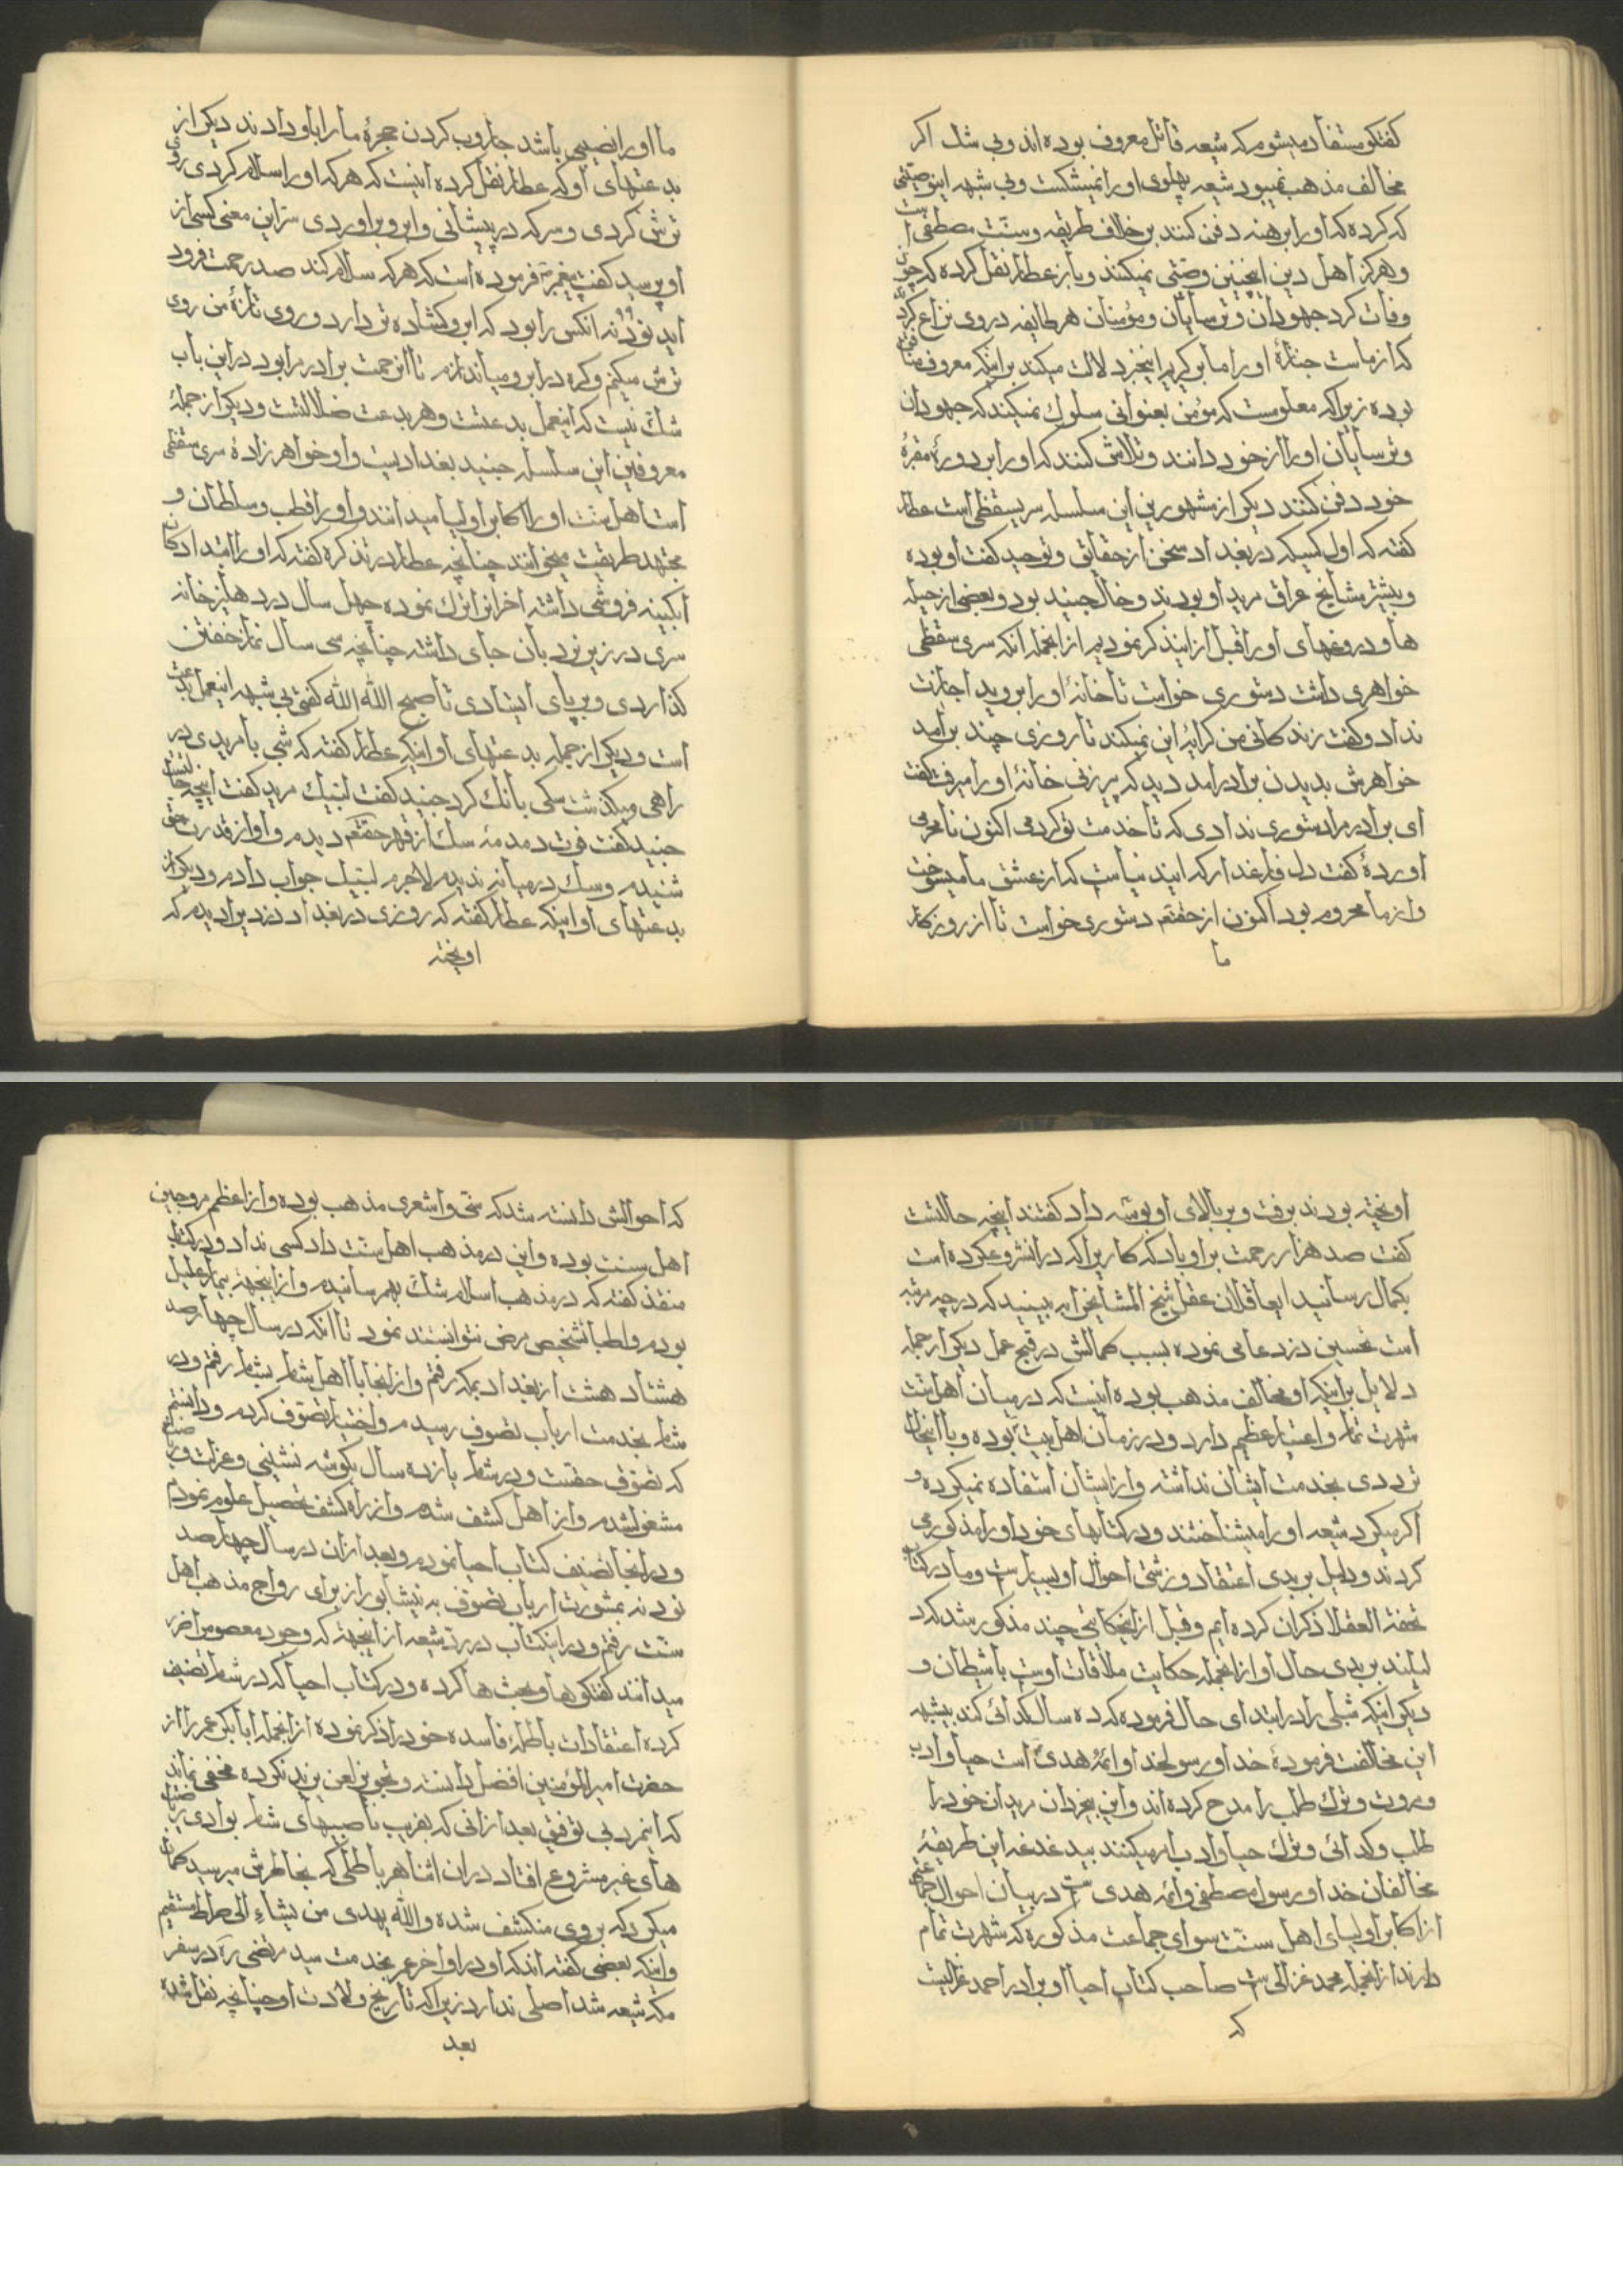 کفتکو مستفاد میشود که شیعه قاتل معروف بوده اند و بی شک اکر
مخالف مذهب نمیبود شیعه پهلوی او را نمیشکست و بی شبهه این وصیتی
که کرده که او را برهنه دفن کنند بر خلاف طریقه و سنت مصطفی است
و هرکز اهل دین اینچنین وصیتی نمیکنند و باز عطار نقل کرده که چون
وفات کرد جهودان و ترسایان و مؤمنان هر طایفه در وی نزاع کردند
که از ماست جنازهٔ او را ما برکیریم اینخبر دلالت میکند بر اینکه معروف منافق
بوده زیرا که معلومست که مؤمن بعنوانی سلوک نمیکند که جهودان
و ترسایان او را از خود دانند و تلاش کنند که او را بر دور مقبرهٔ
خود دفن کنند دیکر از مشهورین این سلسله سری سقطی است عطار
کفته که اول کسیکه در بغداد سخن از حقایق و توحید کفت او بوده
و بیشتر مشایخ عراق مرید او بودند و خال جنید بود و بعضی از حیله
ها و دروغهای او را قبل از این ذکر نمودیم از انجمله انکه سری سقطی
خواهری داشت دستوری خواست تا خانهٔ او را بروید اجازت
نداد و کفت زندکانی من کرایهٔ این نمیکند تا روزی چند برآمد
خواهرش بدیدن برادر امد دید که پیرزنی خانهٔ او را میرفت کفت
ای برادر مرا دستوری ندادی که تا خدمت تو کردمی اکنون نامحرمی
اوردهٔ کفت دل فارغدار که ایندنیاست که از عشق ما میسوخت
و از ما محروم بود اکنون از حقتعم دستوری خواست تا از روزکار
ما
ما او را نصیبی باشد جاروب کردن حجرهٔ ما را باو دادند دیکر از
بدعتهای او که عطار نقل کرده اینست که هر که او را سلام کردی روی
ترش کردی و سرکه در پیشانی و ابرو براوردی سر این معنی کسی از
او پرسید کفت پیغمبر فرموده است که هر که سلام کند صد رحمت فرود
اید نود و نه انکس را بود که ابرو کشاده تر دارد و روی تازه من روی
ترش میکنم و کره در ابرو میاندازم تا انرحمت برادر مرا بود در این باب
شک نیست که اینعمل بدعتست و هر بدعت ضلالتست و دیکر از جملهٔ
معروفین این سلسله جنید بغدادیست و او خواهرزادهٔ سری سقطی
است اهل سنت او را اکابر اولیا میدانند و او را قطب و سلطان و
مجتهد طریقت میخوانند چنانچه عطار در تذکره کفته که او را ابتدا دکان
ابکینه فروشی داشته اخر انرا ترک نموده چهل سال در دهلیز خانه
سری در زیر نردبان جای داشته چنانچه سی سال نماز خفتن
کذاردی و بر پای ایستادی تا صبح الله الله کفتی بی شبهه اینعمل بدعت
است و دیکر از جمله بدعتهای او اینکه عطار کفته که شبی با مریدی در
راهی میکذشت سکی بانک کرد جنید کفت لبیک مرید کفت اینچه حالتست
جنید کفت قوت دمدمهٔ سک از قهر حقتعم دیدم و اواز قدرت حق
شنیدم و سک در میانه ندیدم لاجرم لبیک جواب دادم و دیکر از
بدعتهای او اینکه عطار کفته که روزی در بغداد دزدیرا دیدم که
اویخته
اویخته بودند برفت و بر بالای او بوسه داد کفتند اینچه حالتست
کفت صد هزار رحمت بر او باد که کاریرا که در ان شروع کرده است
بکمال رسانید ایعاقلان عقل شیخ المشایخ را ببینید که در چه مرتبه
است تحسین دزد عاصی نموده بسبب کمالش در قبح عمل دیکر از جمله
دلایل بر اینکه او مخالف مذهب بوده اینست که در میان اهل سنت
شهرت تمام و اعتبار عظیم دارد و در زمان اهل بیت بوده و با اینحال
ترددی بخدمت ایشان نداشته و از ایشان استفاده نمیکرده و
اکر میکرد شیعه او را میشناختند و در کتابهای خود او را مذکور می
کردند و دلیل بر بدی اعتقاد و زشتی احوال او بسیار است و ما در کتاب
تحفة العقلا ذکران کرده ایم و قبل از این حکایتی چند مذکور شد که د
لیلند بر بدی حال او از انجمله حکایت ملاقات اوست با شیطان و
دیکر اینکه شبلی را در ابتدای حال فرموده که ده سال کدائی کند بیشبهه
این مخالفت فرمودهٔ خدا و رسولخدا و ائمهٔ هدی است حیا و ادب
و مروت و ترک طلب را مدح کرده اند و این بیخردان مریدان خود را
طلب و کدائی و ترک حیا و ادب امر میکنند بیدغدغه این طریقهٔ
مخالفان خدا و رسول مصطفی و ائمه هدی است در بیان احوال جماعتی
از اکابر اولیای اهل سنت سوای جماعت مذکوره که شهرت تمام
دارند از انجمله محمد غزالی است صاحب کتاب احیا او برادر احمد غزالیست
که
که احوالش دانسته شد که سنی و اشعری مذهب بوده و از اعظم مروجین
اهل سنت بوده و این در مذهب اهل سنت داد کسی نداد و در کتاب
منقذ کفته که در مذهب اسلام شک بهم رسانیدم و از اینجهة بیمار و علیل
بودم و اطبا تشخیص مرض نتوانستند نمود تا انکه در سال چهارصد
هشتاد هشت از بغداد بمکه رفتم و از انجا با اهل شام بشام رفتم و در
شام بخدمت ارباب تصوف رسیدم و اختیار تصوف کردم و دانستم
که تصوف حقست و در شام یازده سال بکوشه نشینی و عزلت و ریاضت
مشغول شدم و از اهل کشف شدم و از راه کشف تحصیل علوم نمودم
و در انجا تصنیف کتاب احیا نمودم و بعد از ان در سال چهارصد
نود نه بمشورت ارباب تصوف به نیشابور از برای رواج مذهب اهل
سنت رفتم و در اینکتاب در رد شیعه از اینجهة که وجود معصوم را ضرور
میدانند کفتکوها و بحث ها کرده و در کتاب احیا که در شام تصنیف
کرده اعتقادات باطلهٔ فاسده خود را ذکر نموده از انجمله ابابکر و عمر را از
حضرت امیر المؤمنین افضل دانسته و تجویز لعن یزید نکرده مخفی نماند
که اینمرد بی توفیق بعد از انی که بفریب ناصبیهای شام بوادی ریاضت
های غیر مشروع افتاد در ان اثنا هر باطلی که بخاطرش میرسید کمان
میکرد که بر وی منکشف شده والله یهدی من یشاء الی صراط مستقیم
و اینکه بعضی کفته اند که او در اواخر عمر بخدمت سید مرتضی ره در سفر
مکه شیعه شد اصلی ندارد زیرا که تاریخ ولادت او چنانچه نقل شده
بعد